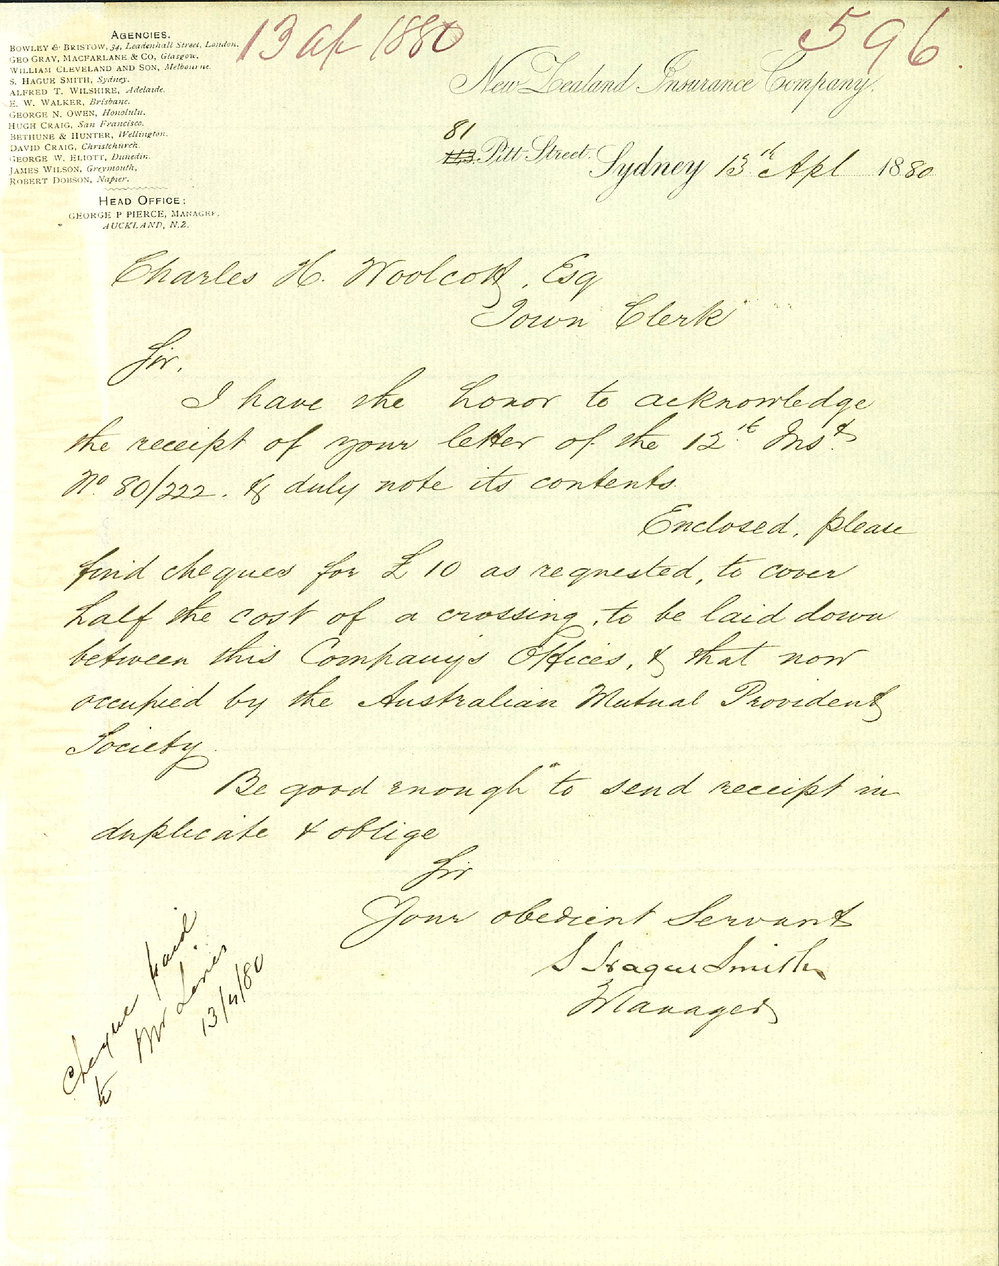 13 Ap 1880
596
AGENCIES.
BOWLEY & BRISTOW, 34, Leadenhall Street, London.
GEO GRAY, MACFARLANE & CO, Glasgow.
WILLIAM CLEVELAND AND SON, Melbourne.
S. HAGUE SMITH, Sydney.
ALFRED T. WILSHIRE, Adelaide.
E. W. WALKER, Brisbane.
GEORGE N. OWEN, Honolulu.
HUGH CRAIG, San Francisco.
BETHUNE & HUNTER, Wellington.
DAVID CRAIG, Christchurch.
GEORGE W. ELIOTT, Dunedin.
JAMES WILSON, Greymouth.
ROBERT DOBSON, Napier.
HEAD OFFICE:
GEORGE P PIERCE, MANAGER.
AUCKLAND, N.Z.
New Zealand Insurance Company.
81
113, Pitt Street. Sydney 13th Apl 1880
Charles H. Woolcott, Esq
Town Clerk
Sir,
I have the honor to acknowledge
the receipt of your letter of the 12th Inst.
No. 80/222. & duly note its contents.
Enclosed, please
find cheques for £10 as requested, to cover
half the cost of a crossing, to be laid down
between this Company's Offices, & that now
occupied by the Australian Mutual Provident
Society.
Be good enough to send receipt in
duplicate & oblige
Sir
Your obedient Servant
S Hague Smith
Manager
Cheque paid
to Mr
13/4/80